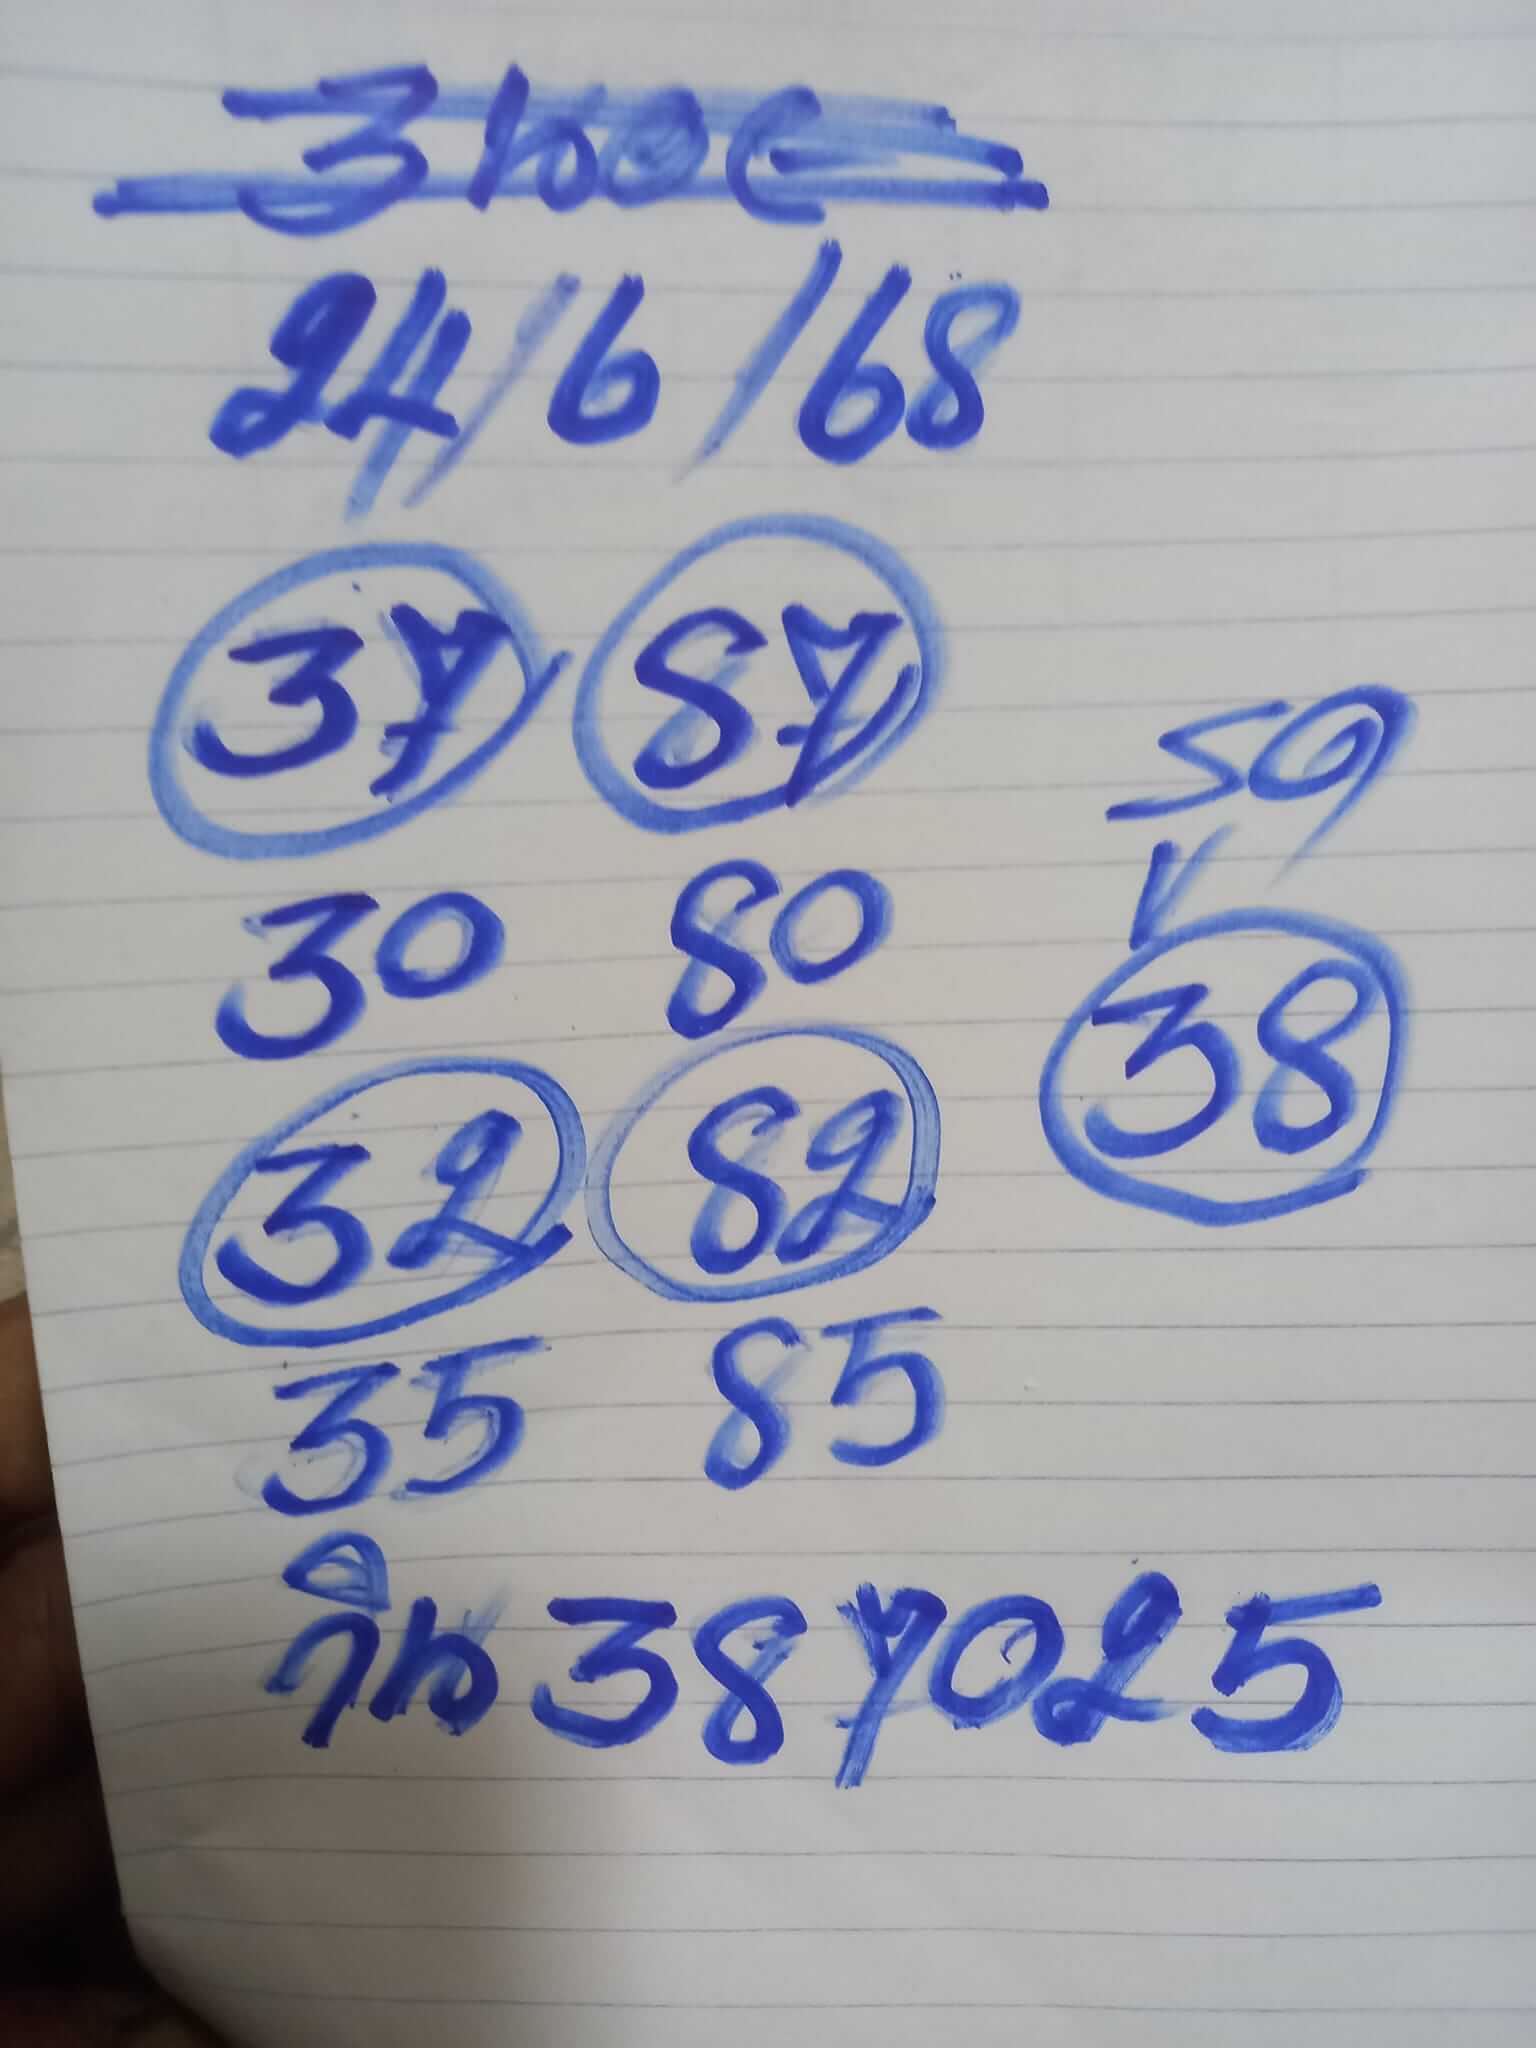 24/6/68
37 87
59
30 80
38
32 82
35 85
วิน 387025